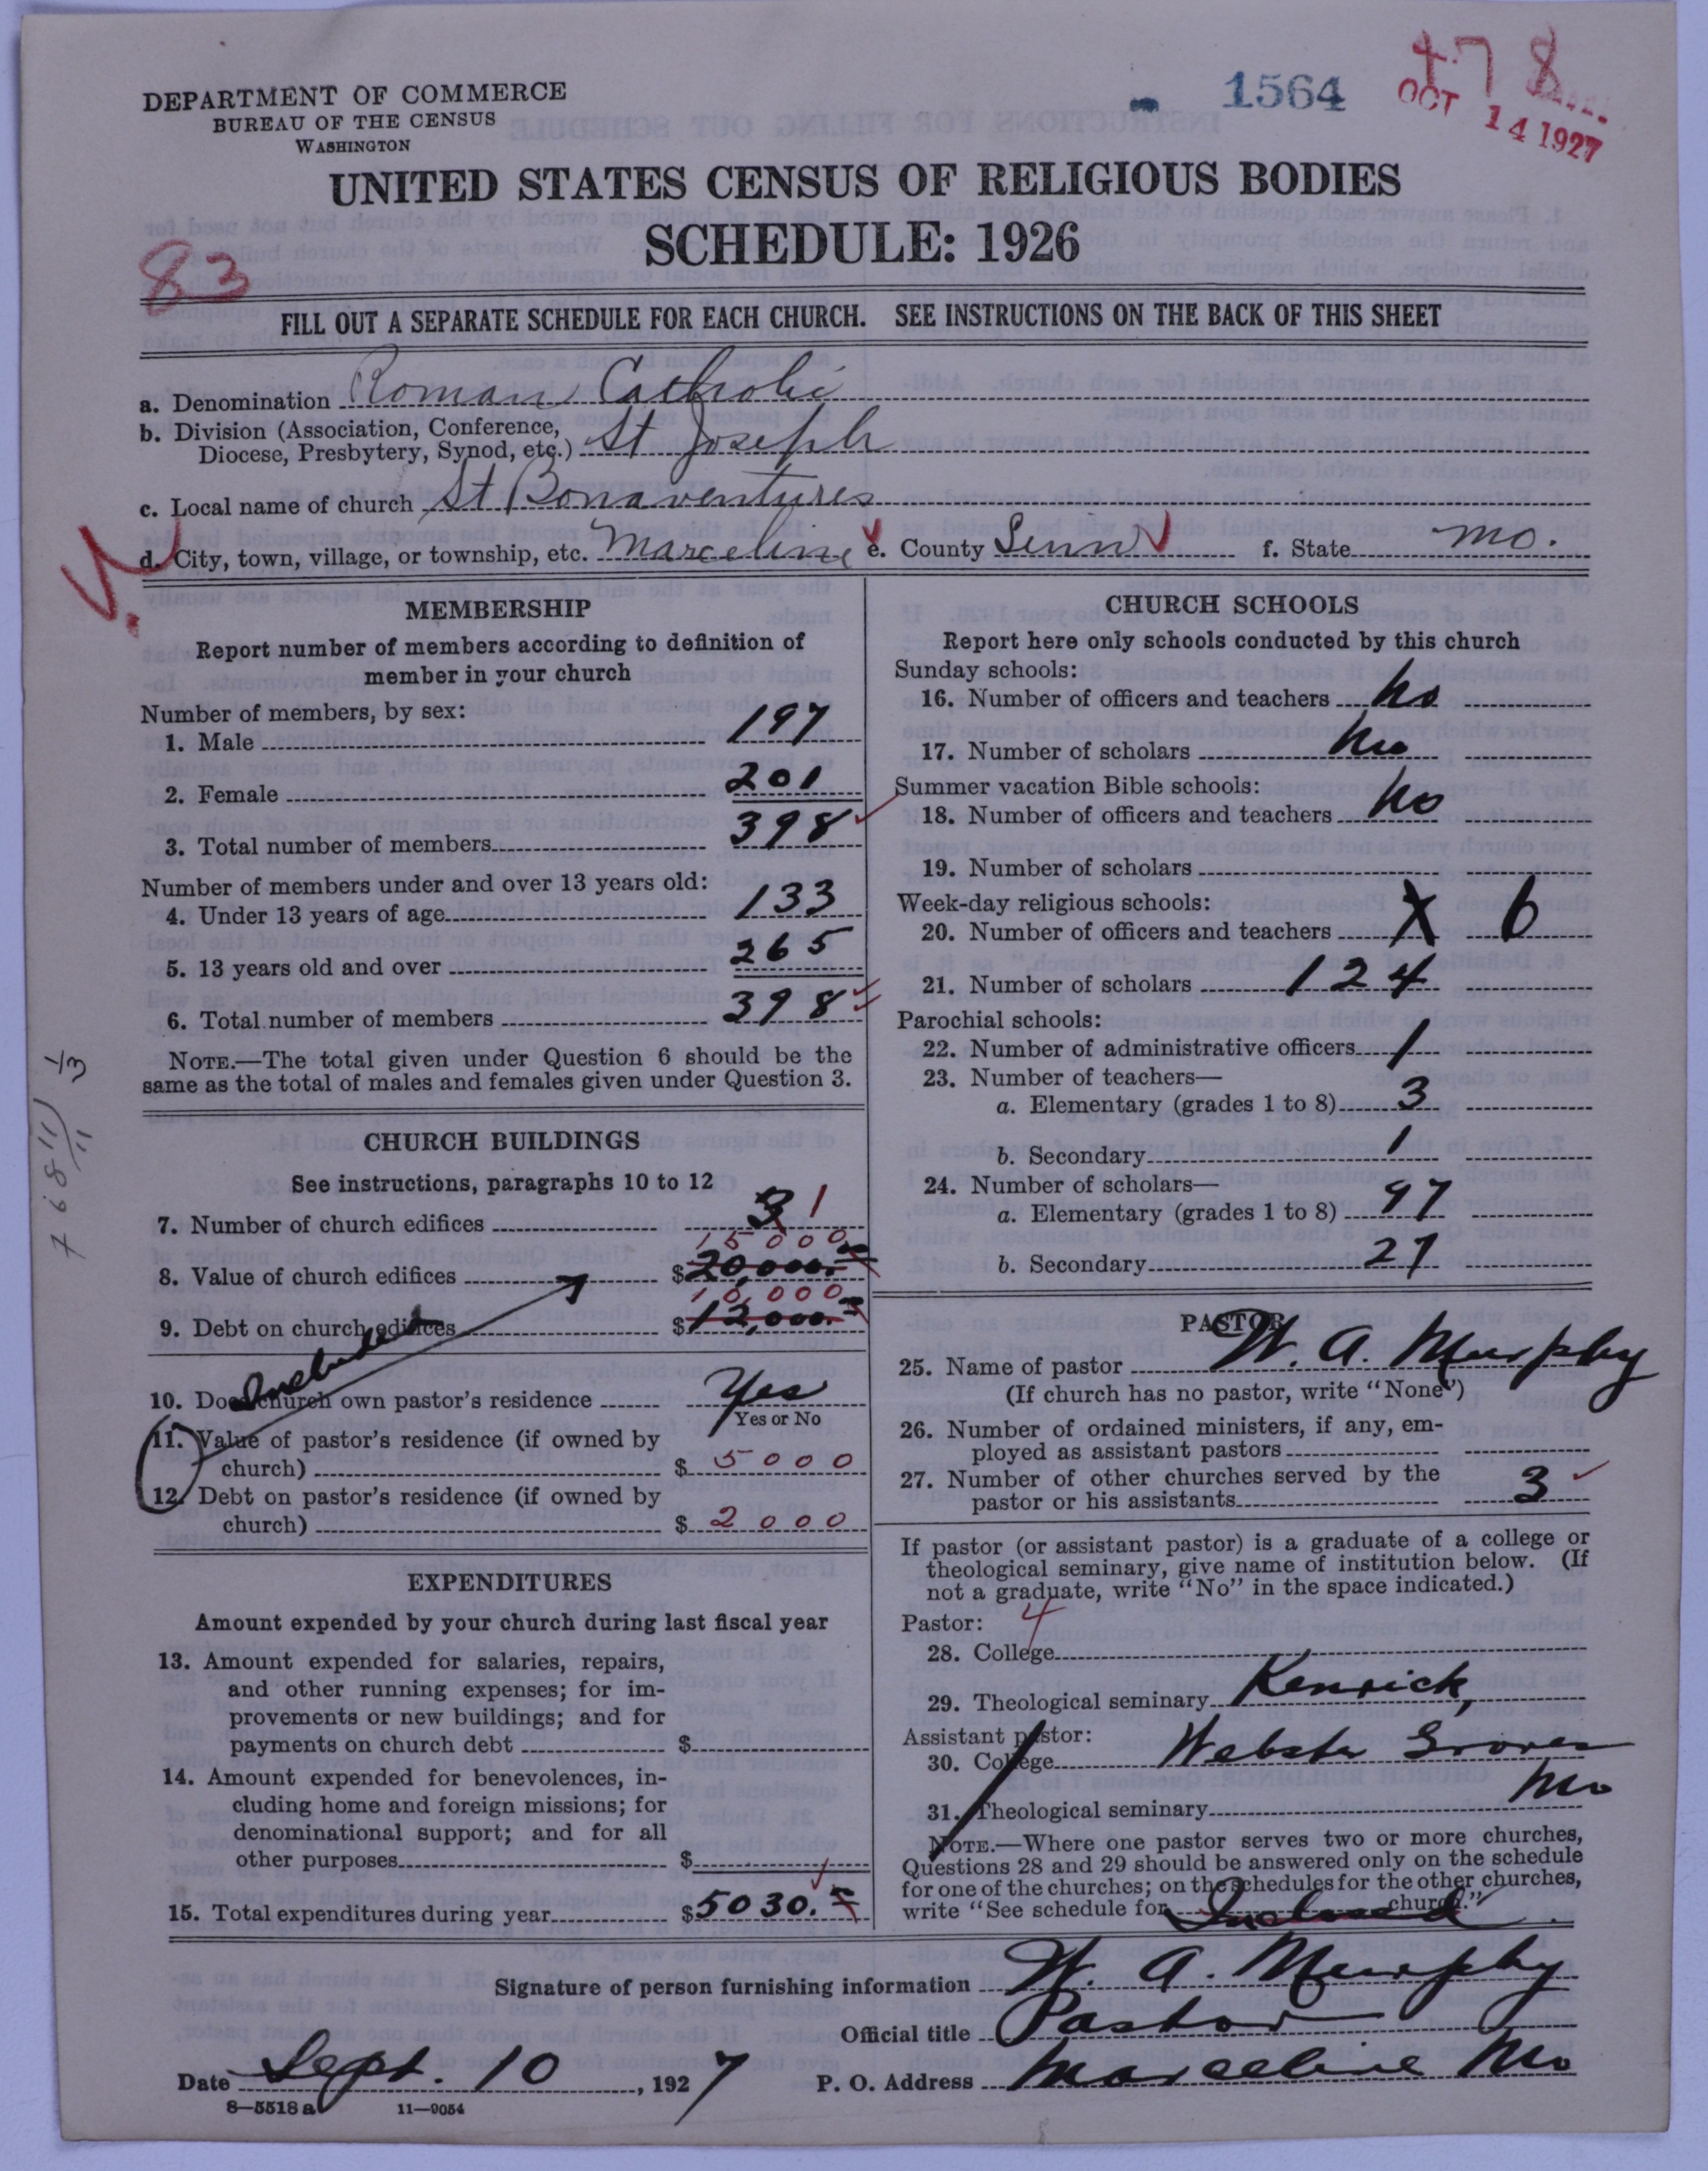 478
1564
OCT 14 1927
DEPARTMENT OF COMMERCE
BUREAU OF THE CENSUS
WASHINGTON
UNITED STATES CENSUS OF RELIGIOUS BODIES
SCHEDULE: 1926
83
FILL OUT A SEPARATE SCHEDULE FOR EACH CHURCH. SEE INSTRUCTIONS ON THE BACK OF THIS SHEET
a. Denomination Roman Catholic
b. Division (Association, Conference,
Diocese, Presbytery, Synod, etc.) St Joseph
c. Local name of church St Bonaventures
d. City, town, village, or township, etc. Marceline e. County Linn f. State Mo.
MEMBERSHIP
Report number of members according to definition of
member in your church
Number of members, by sex:
1. Male 197
2. Female 201
3. Total number of members 398
Number of members under and over 13 years old:
4. Under 13 years of age 133
5. 13 years old and over 265
6. Total number of members 398
NOTE.—The total given under Question 6 should be the
same as the total of males and females given under Question 3.
CHURCH BUILDINGS
See instructions, paragraphs 10 to 12
7. Number of church edifices 3 1
15000
8. Value of church edifices $20,000.=
10,000
9. Debt on church edifices $12,000.=
Included
10. Does church own pastor's residence Yes
Yes or No
11. Value of pastor's residence (if owned by
church) $ 5000
12. Debt on pastor's residence (if owned by
church) $ 2000
EXPENDITURES
Amount expended by your church during last fiscal year
13. Amount expended for salaries, repairs,
and other running expenses; for im-
provements or new buildings; and for
payments on church debt $
14. Amount expended for benevolences, in-
cluding home and foreign missions; for
denominational support; and for all
other purposes $
15. Total expenditures during year $5030.=
CHURCH SCHOOLS
Report here only schools conducted by this church
Sunday schools:
16. Number of officers and teachers no
17. Number of scholars no
Summer vacation Bible schools:
18. Number of officers and teachers no
19. Number of scholars
Week-day religious schools:
20. Number of officers and teachers X 6
21. Number of scholars 124
Parochial schools:
22. Number of administrative officers 1
23. Number of teachers—
a. Elementary (grades 1 to 8) 3
b. Secondary 1
24. Number of scholars—
a. Elementary (grades 1 to 8) 97
b. Secondary 27
PASTOR
25. Name of pastor W. A. Murphy
(If church has no pastor, write "None")
26. Number of ordained ministers, if any, em-
ployed as assistant pastors
27. Number of other churches served by the
pastor or his assistants 3
If pastor (or assistant pastor) is a graduate of a college or
theological seminary, give name of institution below. (If
not a graduate, write "No" in the space indicated.)
Pastor: 4
28. College
29. Theological seminary Kenrick,
Assistant pastor:
30. College Webster Groves
Mo
31. Theological seminary
NOTE.—Where one pastor serves two or more churches,
Questions 28 and 29 should be answered only on the schedule
for one of the churches; on the schedules for the other churches,
write "See schedule for church."
Signature of person furnishing information W. A. Murphy
Official title Pastor
Date Sept. 10, 1927 P. O. Address Marceline Mo
8—5518a 11—9054